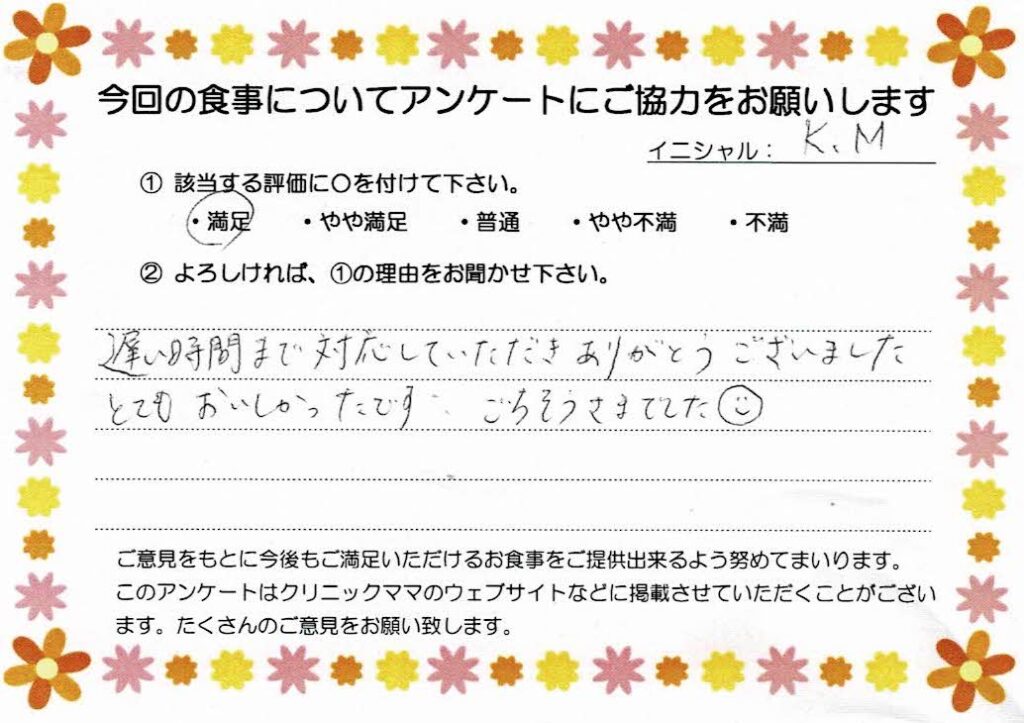 今回の食事についてアンケートにご協力をお願いします
イニシャル： K、M
① 該当する評価に〇を付けて下さい。
・満足 ・やや満足 ・普通 ・やや不満 ・不満
② よろしければ、①の理由をお聞かせ下さい。
遅い時間まで対応していただきありがとうございました
とてもおいしかったです ごちそうさまでした
ご意見をもとに今後もご満足いただけるお食事をご提供出来るよう努めてまいります。
このアンケートはクリニックママのウェブサイトなどに掲載させていただくことがござい
ます。たくさんのご意見をお願い致します。